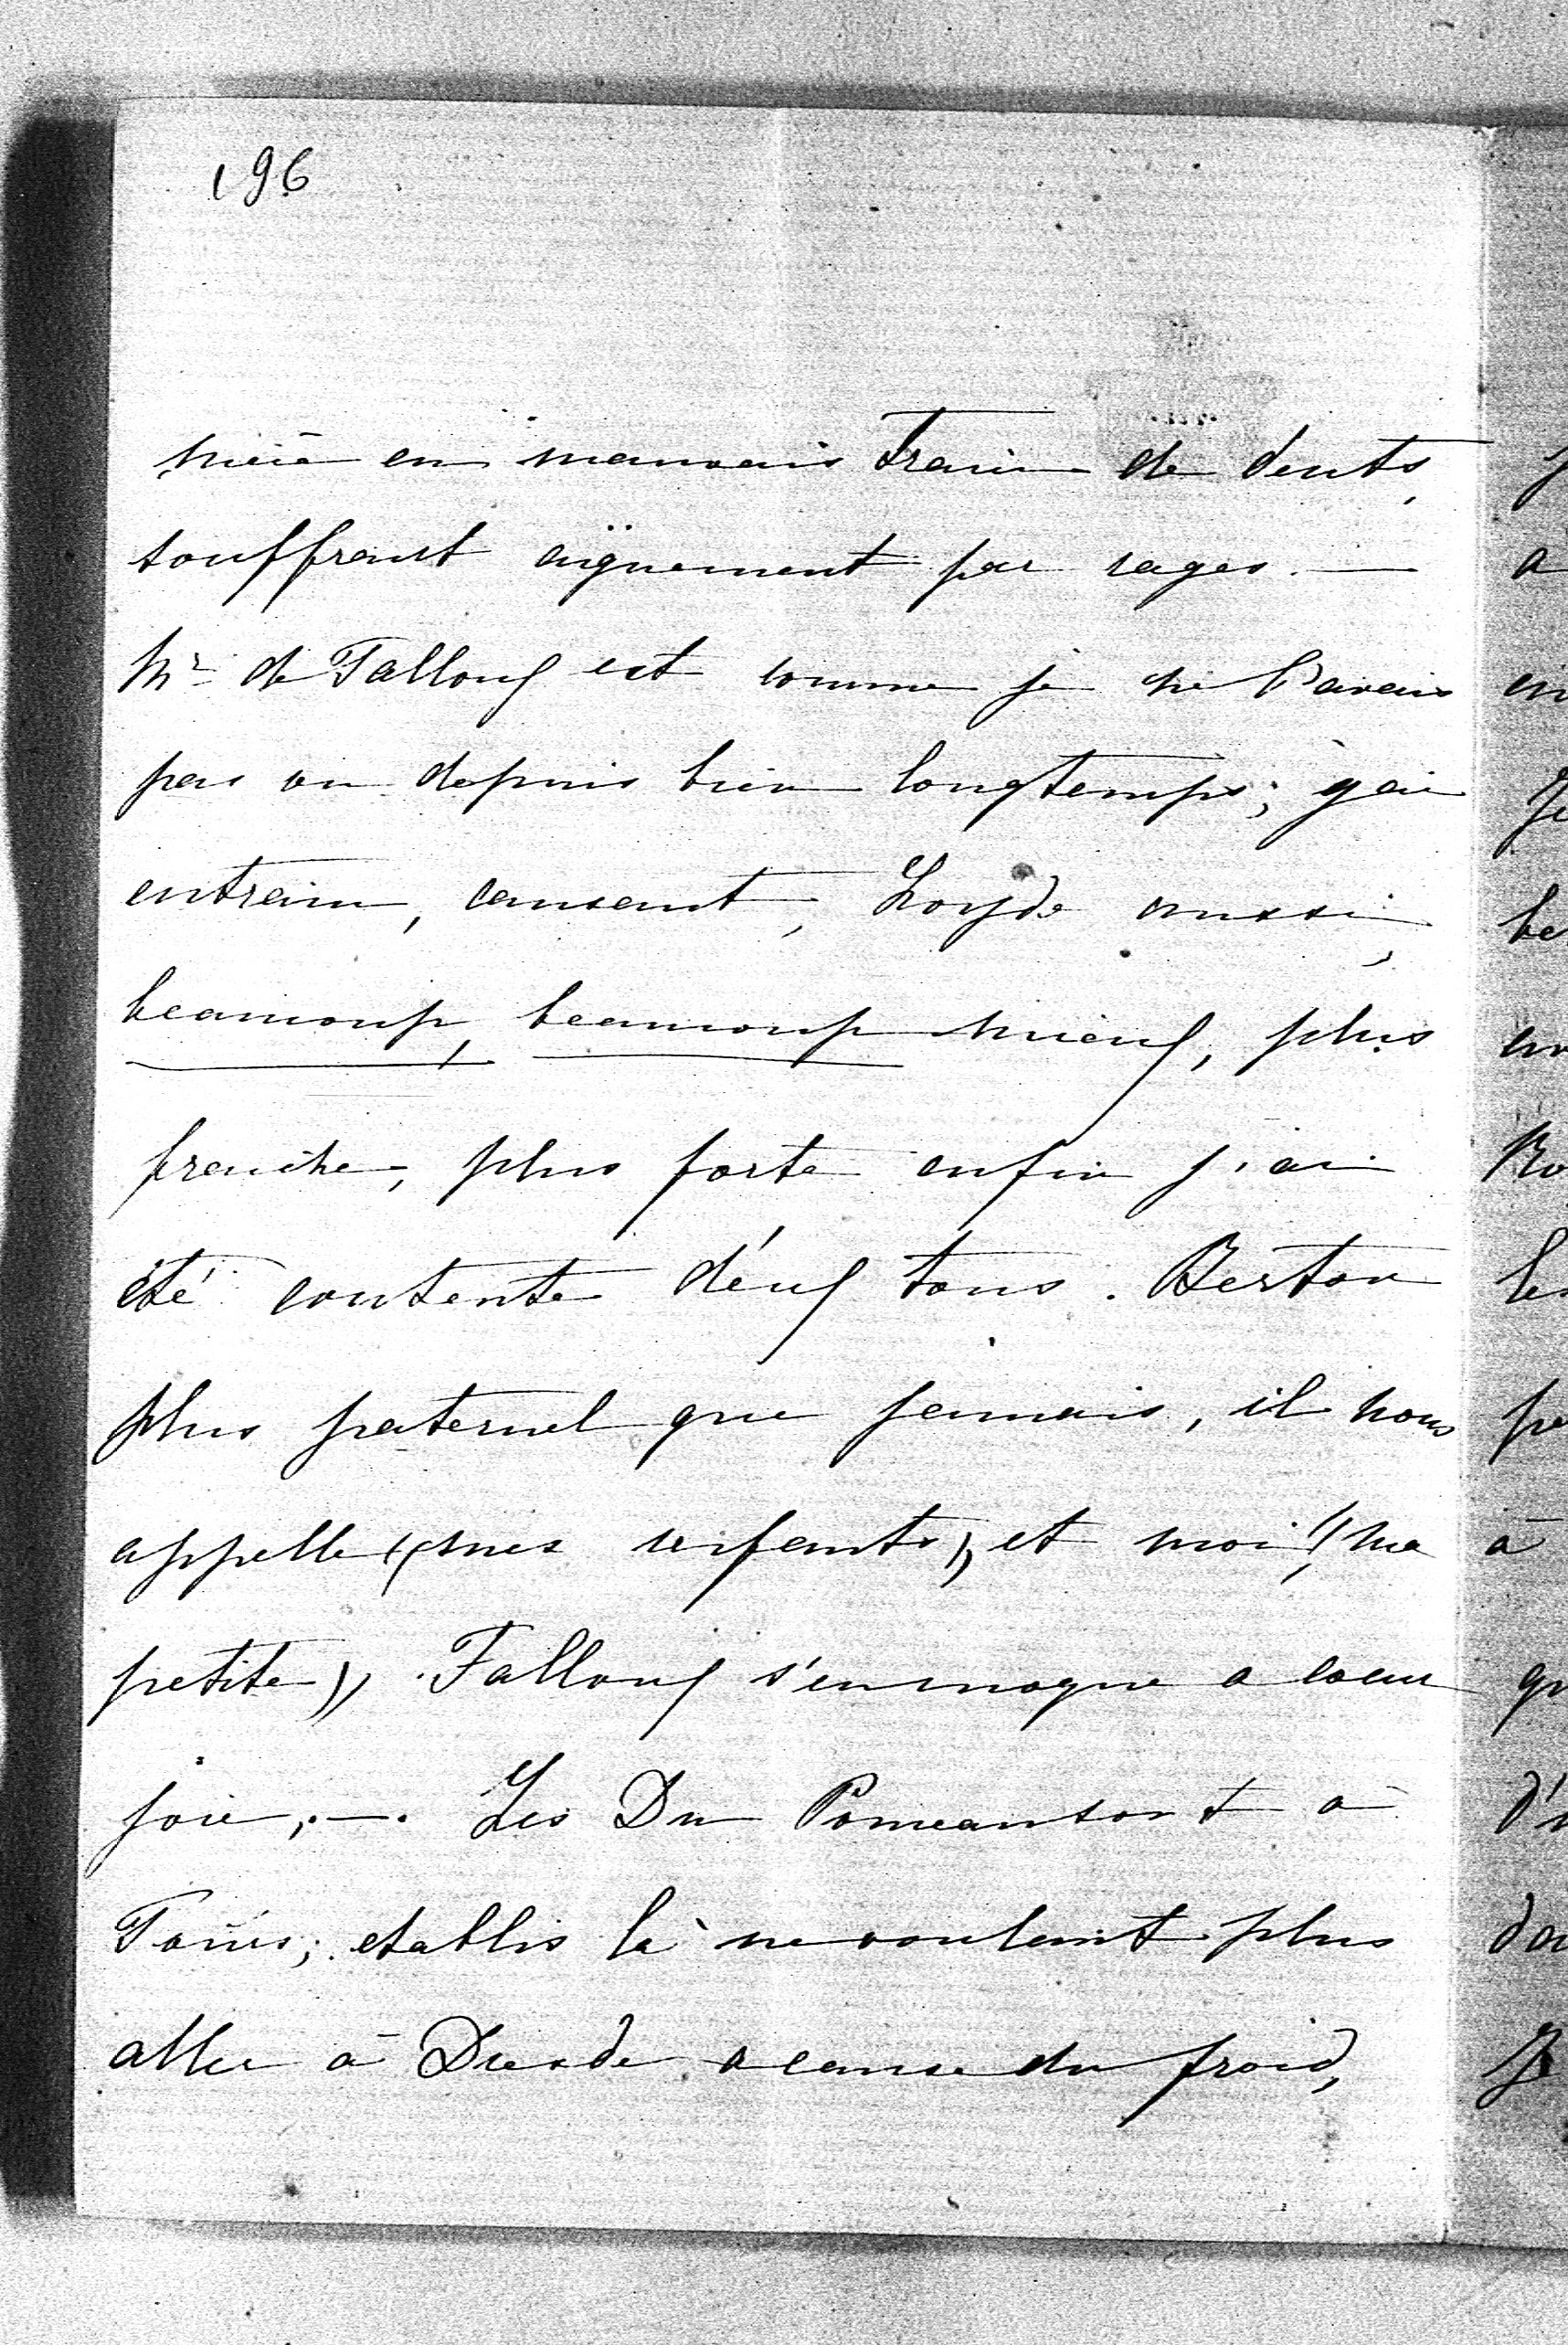 196
mais en mauvais train de dents,
souffrant aïguement par rages. —
Mr de Falloux est comme je ne l'avais
pas vu depuis bien longtemps; gai
entrain, causant, Loyde aussi,
beaucoup, beaucoup mieux, plus
franche, plus forte enfin j'ai
été contente d'eux tous. Berton
plus paternel que jamais, il nous
appelle "mes enfants", et moi, "ma
petite". Falloux s'en moque a coeur
joie, —. Les Du sont à
établis là ne voulant plus
aller à a cause du froid,